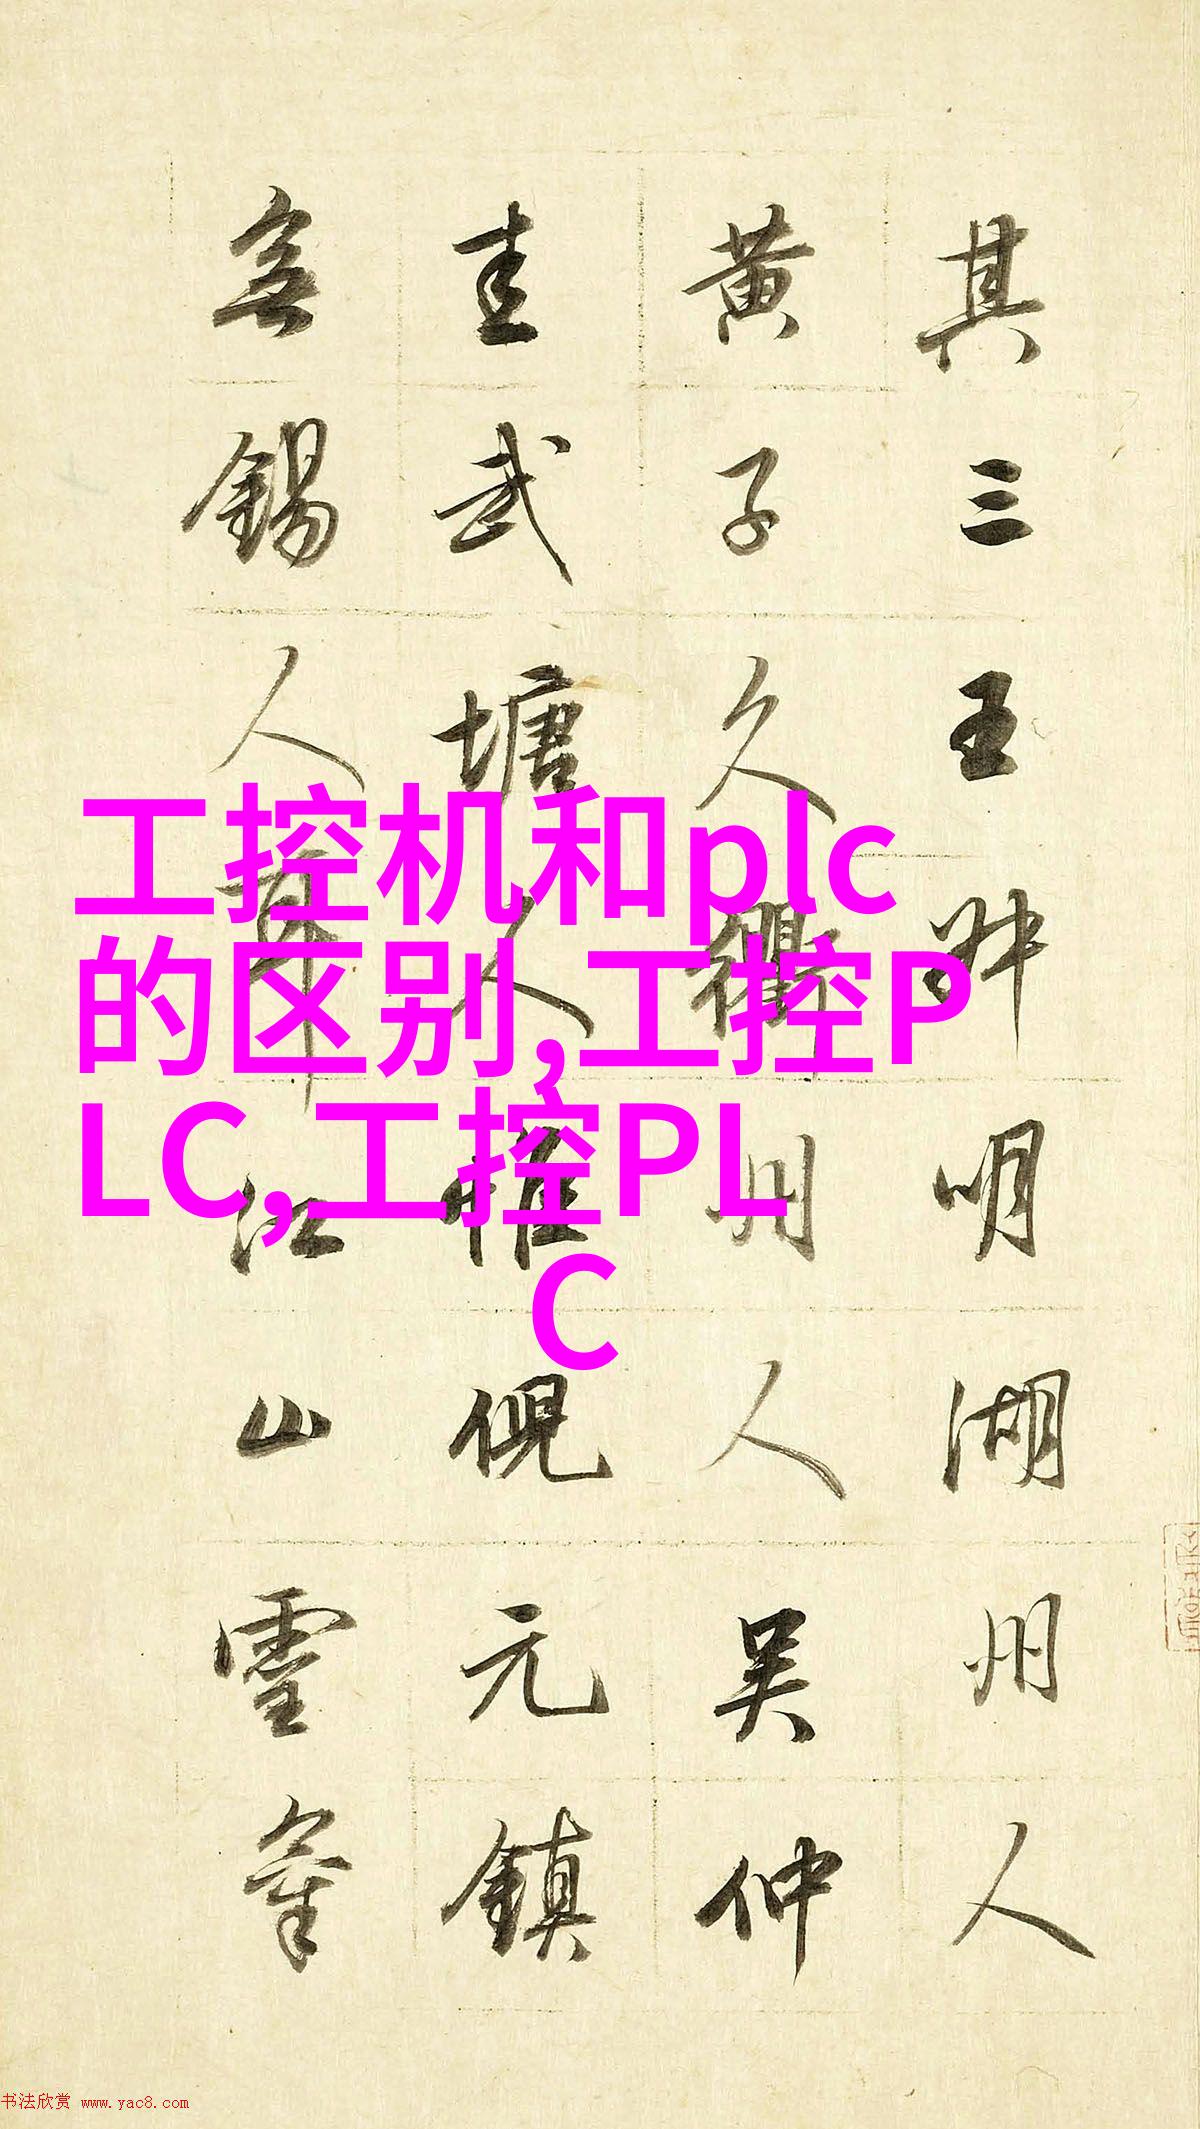 工控机和plc
的区别,工控P
LC,工控PL
C
其三王叔明湖州人
黄子久衢州人吴仲
圭武塘人惟倪元鎮
無錫人耳江山靈氣
书法欣赏 www.yac8.com